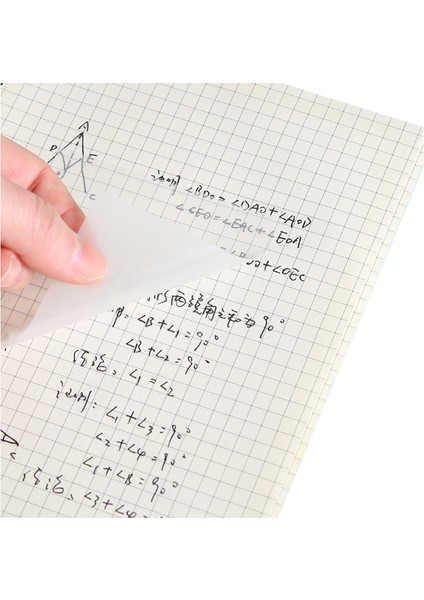 A
D
E
C
证明 ∠BDO = ∠DAO + ∠AOD
∠CEO = ∠EAC + ∠EOA
+ ∠OEC
两锐角之和为90°
∠B + ∠1 = 90°
∠B + ∠2 = 90°
结论: ∠1 = ∠2
证明: ∠1 + ∠3 = 90°
∠2 + ∠4 = 90°
∠1 + ∠B = 90°
结论: ∠3 + ∠4 =